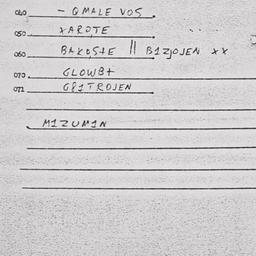 040 - GMALE VOS
050 XAROTE
060 BAKOSTE || B1ZJOJEN XX
070 GLOWBT
071 G81TROJEN
M1ZUM1N